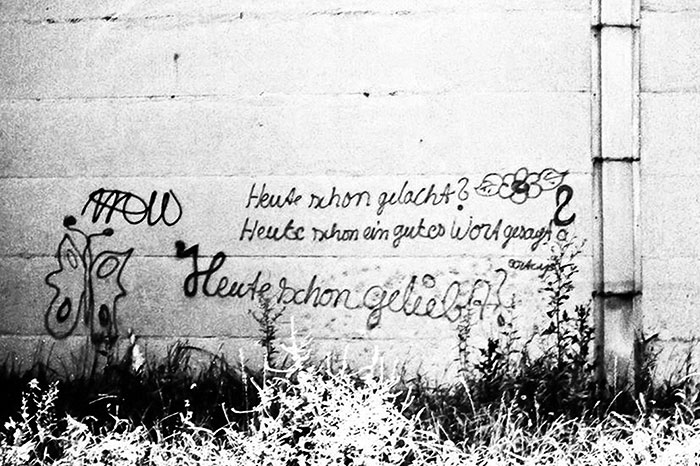 Heute schon gelacht?
Heute schon ein gutes Wort gesagt?
Heute schon geliebt?